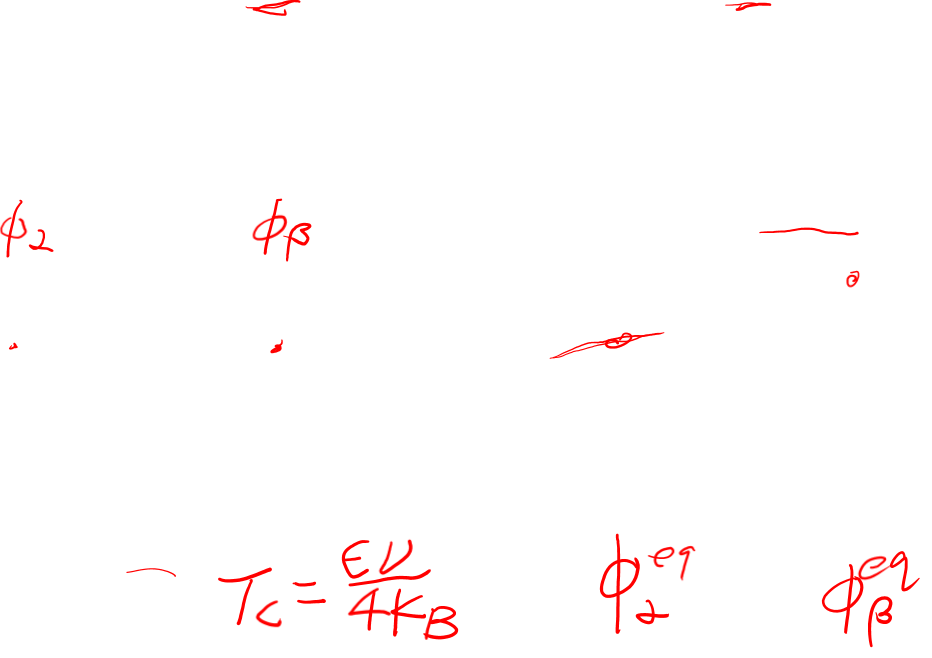 ϕ₂ ϕ_β
T_c = εν/4k_B ϕ₂^eq ϕ_β^eq